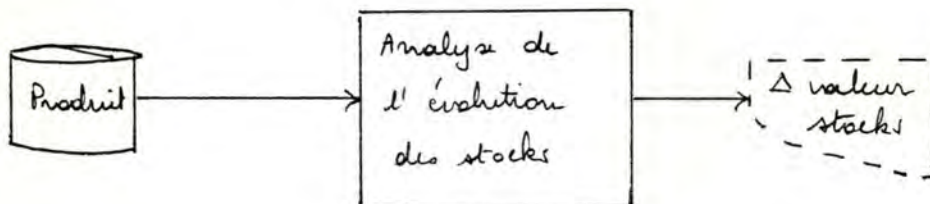 Produit
Analyse de
l'évolution
des stocks
Δ valeur
stocks